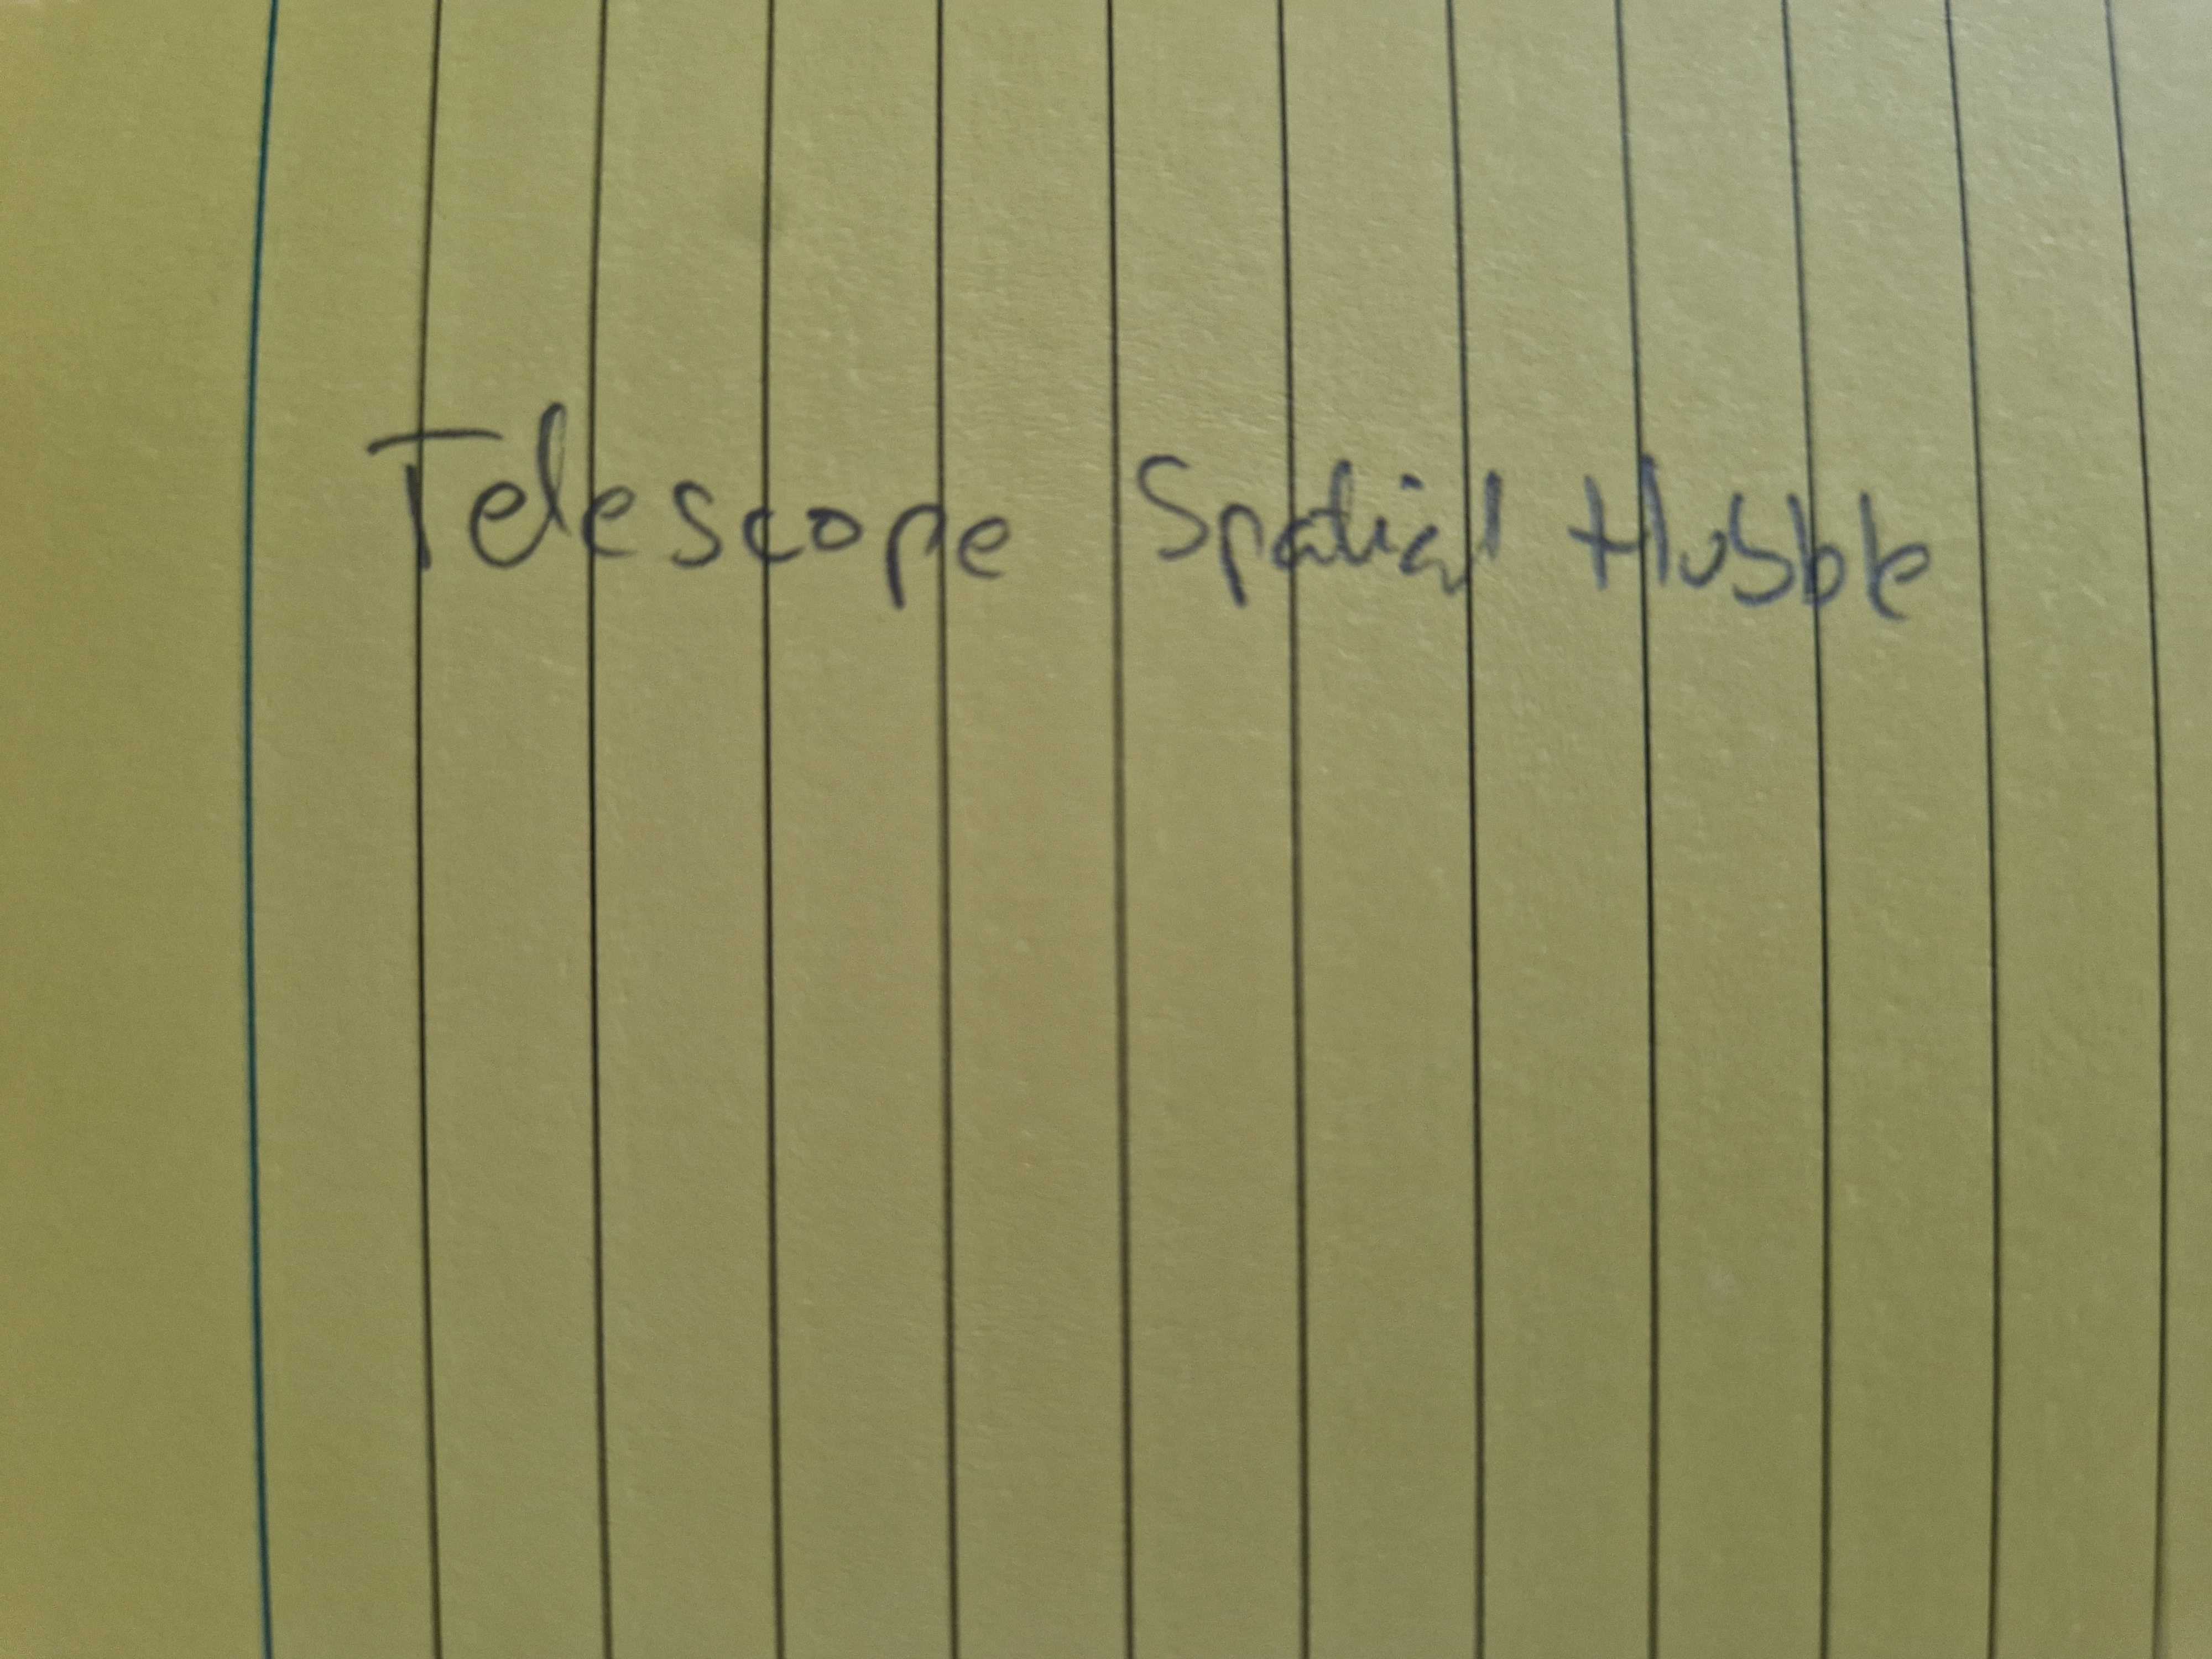 Telescope Spatial Hubble